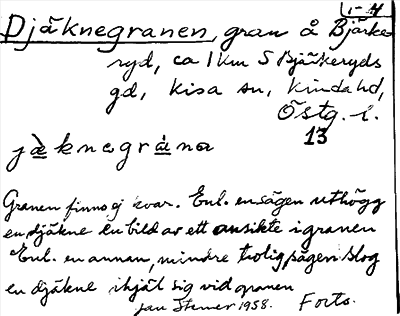 1-4
Djäknegranen, gran å Bjärke-
ryd, ca 1 km S Bjäkeryds
gd, Kisa sn, Kinda hd,
Östg. l.
13
jäknegrána
Granen finns ej kvar. Enl. en sägen uthögg
en djäkne en bild av ett ansikte i granen
Enl. en annan, mindre trolig sägen slog
en djäkne ihjäl sig vid granen
Jan Stemer 1958. Forts.